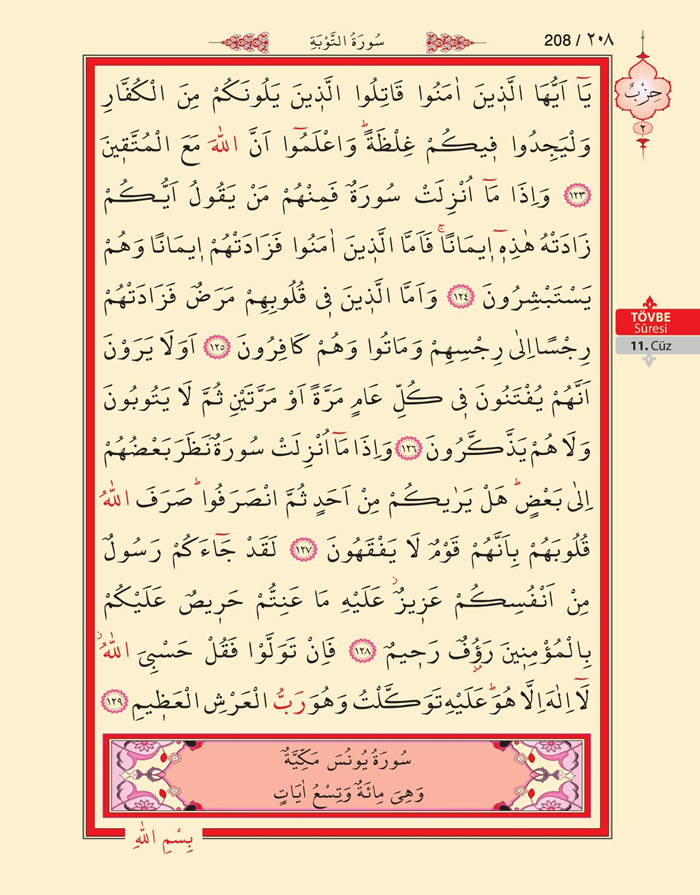 سُورَةُ التَّوْبَةِ
208 / ٢٠٨
حِزْبٌ
٢
يَٓا اَيُّهَا الَّذ۪ينَ اٰمَنُوا قَاتِلُوا الَّذ۪ينَ يَلُونَكُمْ مِنَ الْكُفَّارِ
وَلْيَجِدُوا ف۪يكُمْ غِلْظَةًۜ وَاعْلَمُٓوا اَنَّ اللّٰهَ مَعَ الْمُتَّق۪ينَ
﴿١٢٣﴾ وَاِذَا مَٓا اُنْزِلَتْ سُورَةٌ فَمِنْهُمْ مَنْ يَقُولُ اَيُّكُمْ
زَادَتْهُ هٰذِه۪ٓ ا۪يمَانًاۚ فَاَمَّا الَّذ۪ينَ اٰمَنُوا فَزَادَتْهُمْ ا۪يمَانًا وَهُمْ
يَسْتَبْشِرُونَ ﴿١٢٤﴾ وَاَمَّا الَّذ۪ينَ ف۪ي قُلُوبِهِمْ مَرَضٌ فَزَادَتْهُمْ
رِجْسًا اِلٰى رِجْسِهِمْ وَمَاتُوا وَهُمْ كَافِرُونَ ﴿١٢٥﴾ اَوَلَا يَرَوْنَ
اَنَّهُمْ يُفْتَنُونَ ف۪ي كُلِّ عَامٍ مَرَّةً اَوْ مَرَّتَيْنِ ثُمَّ لَا يَتُوبُونَ
وَلَا هُمْ يَذَّكَّرُونَ ﴿١٢٦﴾ وَاِذَا مَٓا اُنْزِلَتْ سُورَةٌ نَظَرَ بَعْضُهُمْ
اِلٰى بَعْضٍۜ هَلْ يَرٰيكُمْ مِنْ اَحَدٍ ثُمَّ انْصَرَفُواۜ صَرَفَ اللّٰهُ
قُلُوبَهُمْ بِاَنَّهُمْ قَوْمٌ لَا يَفْقَهُونَ ﴿١٢٧﴾ لَقَدْ جَٓاءَكُمْ رَسُولٌ
مِنْ اَنْفُسِكُمْ عَز۪يزٌ عَلَيْهِ مَا عَنِتُّمْ حَر۪يصٌ عَلَيْكُمْ
بِالْمُؤْمِن۪ينَ رَؤُ۫فٌ رَح۪يمٌ ﴿١٢٨﴾ فَاِنْ تَوَلَّوْا فَقُلْ حَسْبِيَ اللّٰهُۘ
لَٓا اِلٰهَ اِلَّا هُوَۜ عَلَيْهِ تَوَكَّلْتُ وَهُوَ رَبُّ الْعَرْشِ الْعَظ۪يمِ ﴿١٢٩﴾
TÖVBE
Sûresi
11. Cüz
سُورَةُ يُونُسَ مَكِّيَّةٌ
وَهِيَ مِائَةٌ وَتِسْعُ اٰيَاتٍ
بِسْمِ اللّٰهِ